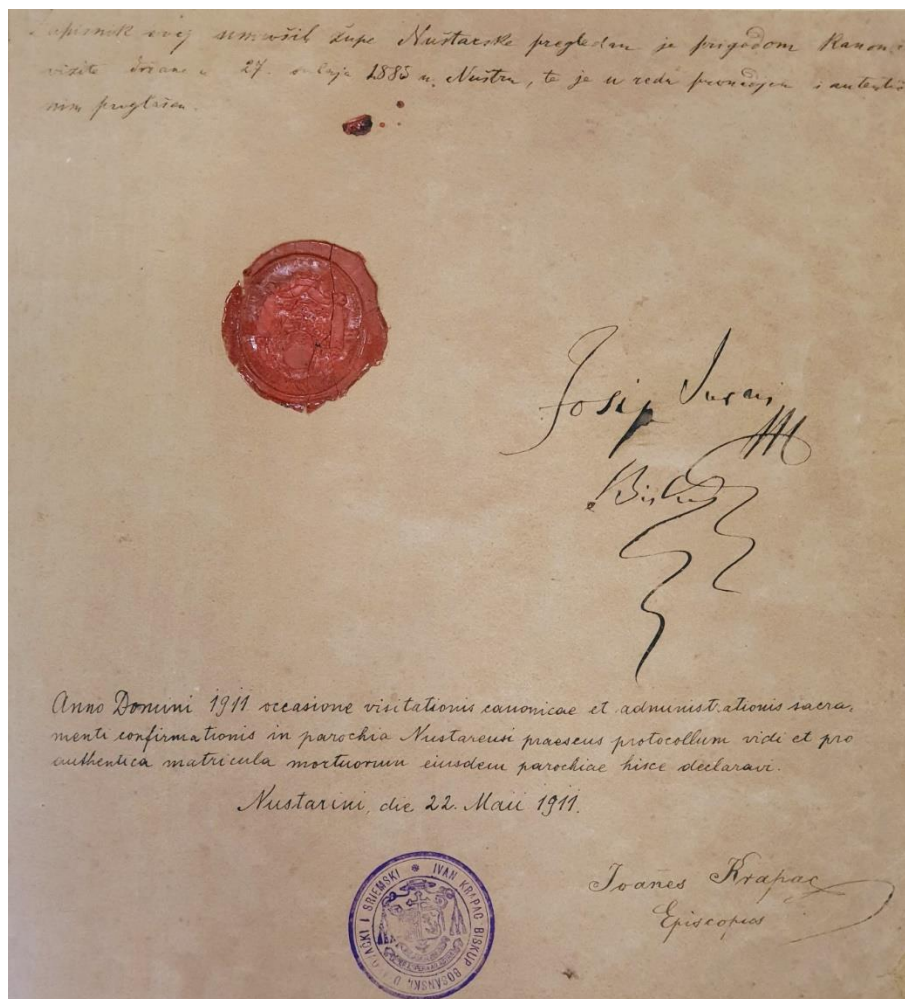 Zapisnik ovaj umrlih župe Nuštarske pregledan je prigodom Kanon.
visite 27. 1885 u Nuštru, te je u redu pronadjen i
nim proglašen.
Josip
Anno Domini 1911 occasione visitationis canonicae et administrationis sacra-
menti confirmationis in parochia Nustarensi praesens protocollum vidi et pro
authentica matricula mortuorum eiusdem parochiae hisce declaravi.
Nustarini, die 22. Maii 1911.
Ioanes Krapac
Episcopus
IVAN KRAPAC BISKUP BOSANSKI, I SRIEMSKI